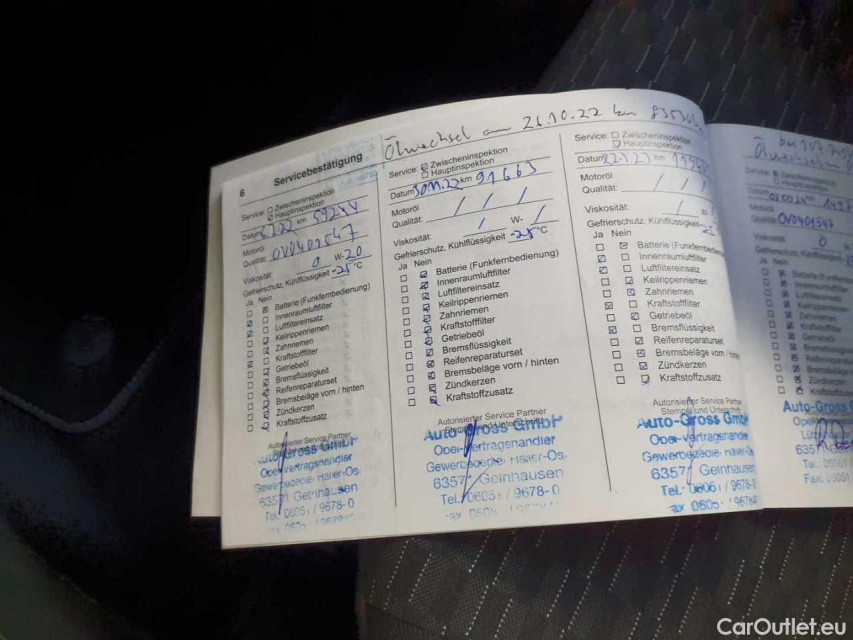 Ölwechsel am 26.10.22 km
6 Servicebestätigung
Service: Zwischeninspektion
Hauptinspektion
Datum km 59244
Motoröl
Qualität: OV0401547
Viskosität: 0 W-20
Gefrierschutz, Kühlflüssigkeit -25 °C
Ja Nein
Batterie (Funkfernbedienung)
Innenraumluftfilter
Luftfiltereinsatz
Keilrippenriemen
Zahnriemen
Kraftstofffilter
Getriebeöl
Bremsflüssigkeit
Reifenreparaturset
Bremsbeläge vorn / hinten
Zündkerzen
Kraftstoffzusatz
Autorisierter Service Partner
Auto-Gross GmbH
Opel-Vertragshändler
63571 Gelnhausen
Tel. 06051 / 9678-0
Service: Zwischeninspektion
Hauptinspektion
Datum 30.11.22 km 91663
Motoröl
Qualität: / / /
Viskosität: / W- /
Gefrierschutz, Kühlflüssigkeit -25 °C
Ja Nein
Batterie (Funkfernbedienung)
Innenraumluftfilter
Luftfiltereinsatz
Keilrippenriemen
Zahnriemen
Kraftstofffilter
Getriebeöl
Bremsflüssigkeit
Reifenreparaturset
Bremsbeläge vorn / hinten
Zündkerzen
Kraftstoffzusatz
Autorisierter Service Partner
Auto-Gross GmbH
Opel-Vertragshändler
63571 Gelnhausen
Tel. 06051 / 9678-0
Service: Zwischeninspektion
Hauptinspektion
Datum km
Motoröl
Qualität: / / /
Viskosität: /
Gefrierschutz, Kühlflüssigkeit
Ja Nein
Batterie (Funkfernbedienung
Innenraumluftfilter
Luftfiltereinsatz
Keilrippenriemen
Zahnriemen
Kraftstofffilter
Getriebeöl
Bremsflüssigkeit
Reifenreparaturset
Bremsbeläge vorn / hin
Zündkerzen
Kraftstoffzusatz
Autorisierter Service Partne
Auto-Gross GmbH
Opel-Vertragshändler
63571 Gelnhausen
Tel. 06051 / 9678-0
Ölwechsel
Qualität: OV0401547
Viskosität: 0
Ja Nein
Batterie
Innenraumluftfilter
Luftfiltereinsatz
Keilrippenriemen
Zahnriemen
Kraftstofffilter
Getriebeöl
Bremsflüssigkeit
Reifenreparaturset
Bremsbeläge
Zündkerzen
Kraftstoffzusatz
Auto-Gross
CarOutlet.eu